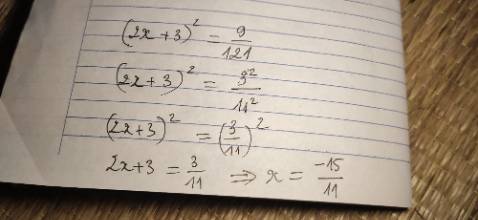 (2x+3)² = 9/121
(2x+3)² = 3²/11²
(2x+3)² = (3/11)²
2x+3 = 3/11 ⇒ x = -15/11